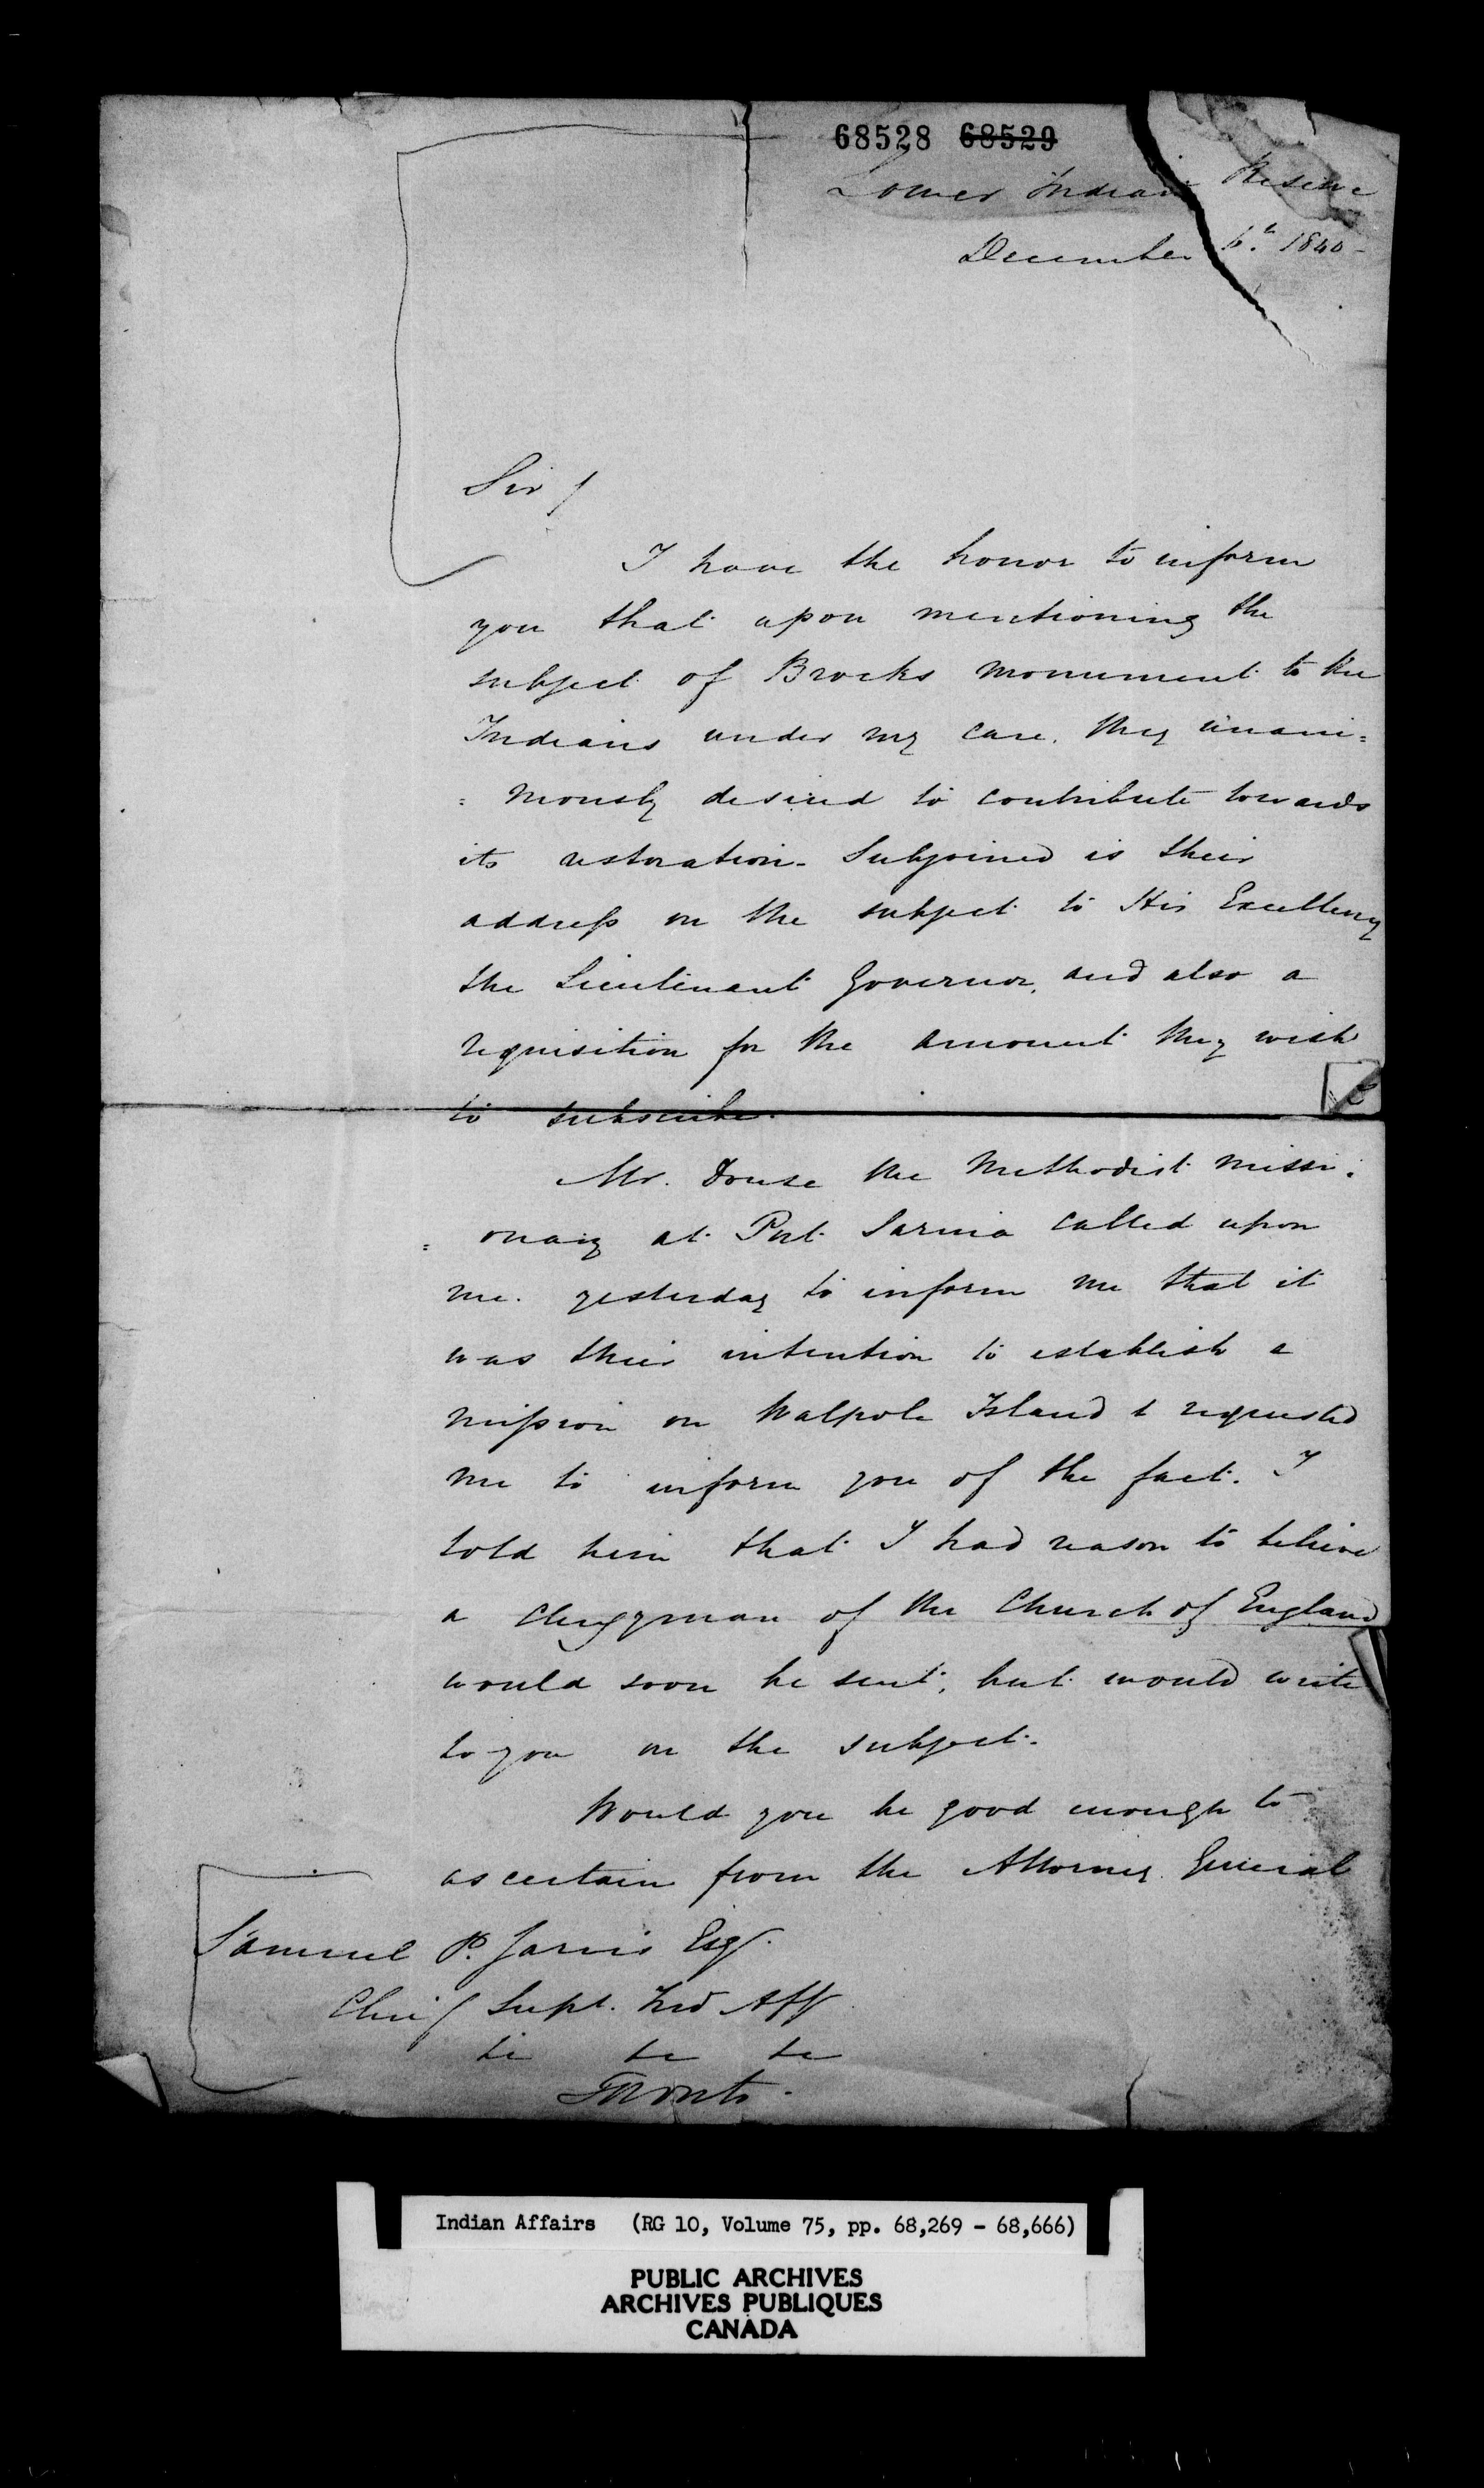 68528 68529
Lower Indian Reserve
December 6.th 1840 -
Sir /
I have the honor to inform
you that upon mentioning the
subject of Brocks monument to the
Indians under my care, they unani=
= mously desired to contribute towards
its restoration - Subjoined is their
address on the subject to His Excellency
the Lieutenant Governor, and also a
requisition for the amount they wish
to subscribe.
Mr. Douse the Methodist missi=
= onary at Port Sarnia called upon
me yesterday to inform me that it
was their intention to establish a
mission on Walpole Island & requested
me to inform you of the fact. I
told him that I had reason to believe
a clergyman of the Church of England
would soon be sent, but would write
to you on the subject.
Would you be good enough to
ascertain from the Attorney General
Samuel P. Jarvis Esq.
Chief Supt. Ind Aff
&c &c &c
Toronto.
Indian Affairs (RG 10, Volume 75, pp. 68,269 - 68,666)
PUBLIC ARCHIVES
ARCHIVES PUBLIQUES
CANADA